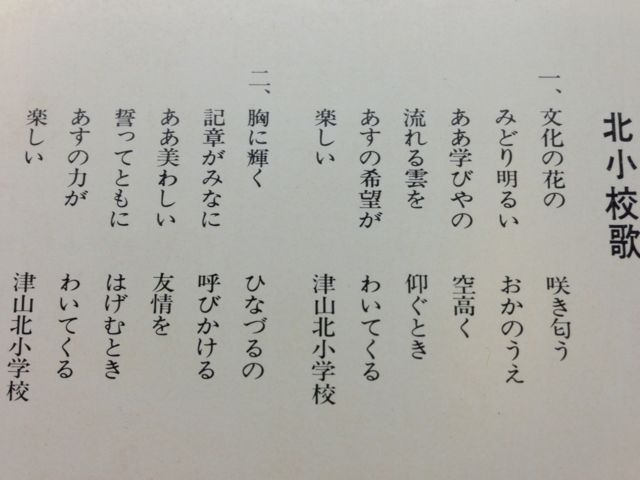 北小校歌
一、文化の花の　咲き匂う
みどり明るい　おかのうえ
ああ学びやの　空高く
流れる雲を　仰ぐとき
あすの希望が　わいてくる
楽しい　津山北小学校
二、胸に輝く　ひなづるの
記章がみなに　呼びかける
ああ美わしい　友情を
誓ってともに　はげむとき
あすの力が　わいてくる
楽しい　津山北小学校